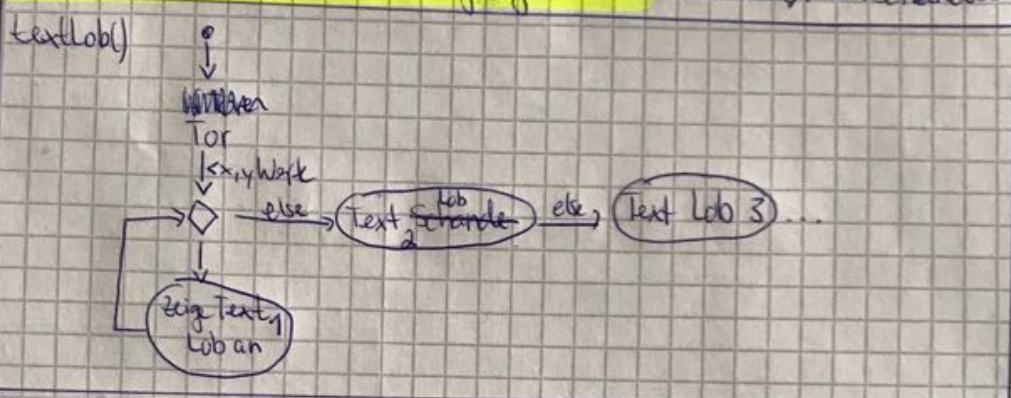 textLob()
Tor
<x,y Wert
else
Text Lob
2
else
Text Lob 3 ...
zeige Text 1
Lob an